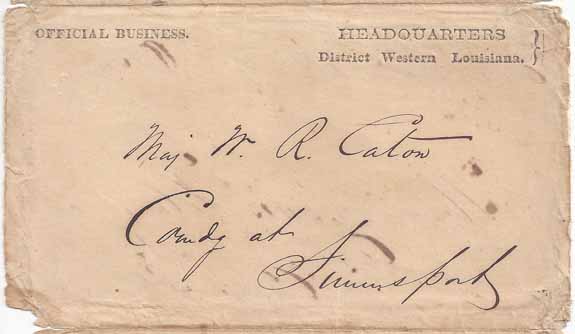 OFFICIAL BUSINESS.
HEADQUARTERS
District Western Louisiana.
Maj W. R. Caton
Comdg at
Simmsport